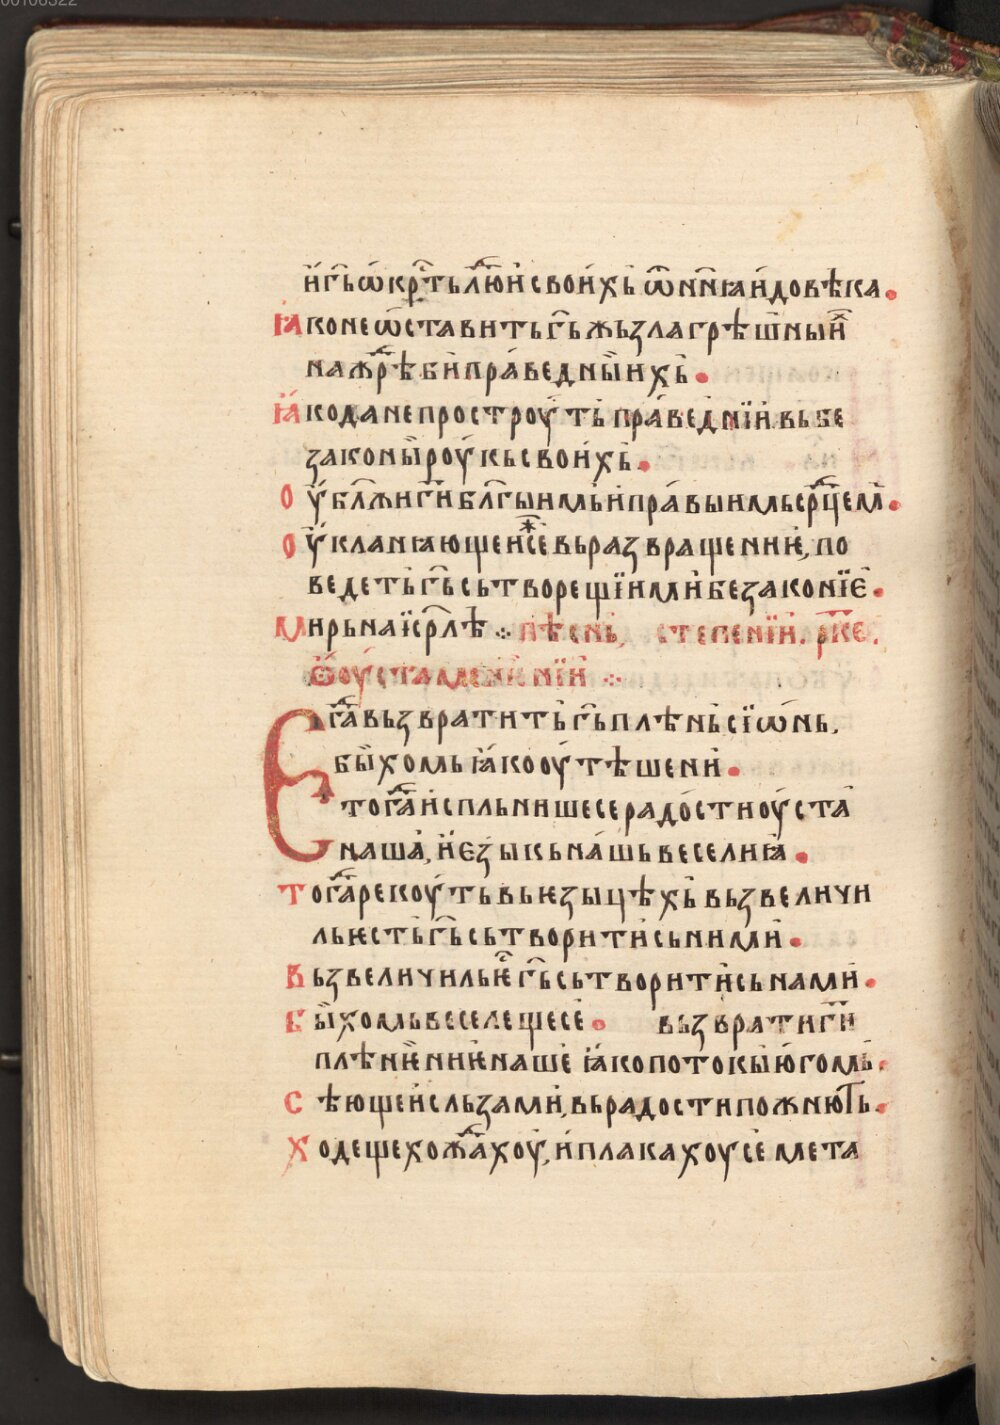 00108322
и҆ г҃ь ѡ҆крⷭ҇ть лю҃и свои́хь ѿ нн҃ꙗ и҆ до вѣка.
Ꙗ҆ко не ѡ҆ставить г҃ь жьзла грѣшныиⷯ
на жрѣ́би пра́ведныихь.
Ꙗ҆ко да не простроу́ть пра́веднїи вь бе
законы̏ роу́кь свои́хь.
Оу҆бл҃жи г҃и бл҃гыимь и҆ пра́выимь срⷣцемⸯ.
Оу҆кланꙗющеи жⷤ се вь развращенниѥ, по
ведеть г҃ь сь творещїими безаконїе.
Мирь на ї҆ср҃лѣ ⁘ Пѣснь, степенїи. рк҃е.
во́ уставлѥнѥнїи ⁘
Егⷣа вьзвратить г҃ь плѣнь сїѡ́нь,
бы́хомь ꙗ҆ко оу҆тѣшени.
тогⷣа и҆спльнише се радости оу҆ста
наша, и҆ е҆зыкь на́шь веселиꙗ.
Тогⷣа рекоу́ть вь ѥзыцѣхь вьзвеличи
ль ѥсть г҃ь сьтворити сь ними.
Вьзвеличиль ѥⷭ҇ г҃ь сьтворити сь нами.
Бы́хомь веселеще се. вьзврати г҃и
плѣнѥниѥ наше ꙗ҆ко потокы ю҆гомь.
Сѣющеи сльзами, вь радости пожнють.
Ходеще хожⷣахоу, и҆ плакахоу се мета